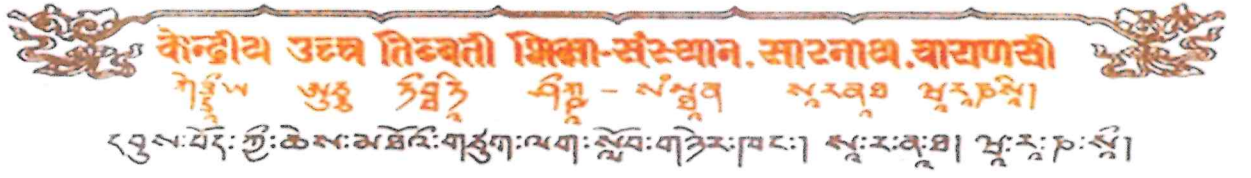 केन्द्रीय उच्च तिब्बती शिक्षा-संस्थान. सारनाथ. वाराणसी
ཀེནྡྲཱིཡ ཨུཙྩ ཏིབྦཏཱི ཤིཀྵཱ - སཾསྠཱན སཱརནཱཐ ཝཱརཱཎསཱི།
དབུས་བོད་ཀྱི་ཆེས་མཐོའི་གཙུག་ལག་སློབ་གཉེར་ཁང་། སཱ་ར་ནཱ་ཐ། ཝཱ་རཱ་ཎ་སཱི།